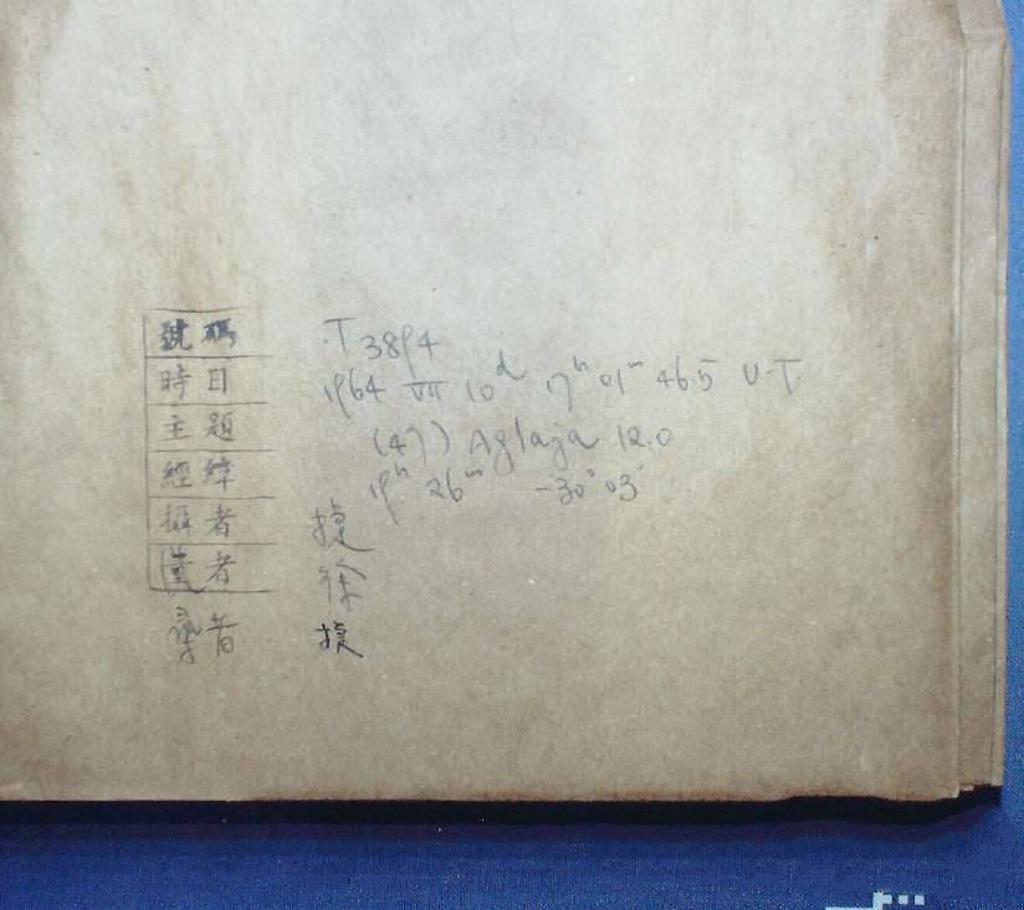 號碼 T 3894
時日 1964 VII 10d 17h 01m 46.5 U.T.
主題 (47) Aglaja 12.0
經緯 19h 26m -30° 03'
攝者
者 徐
者